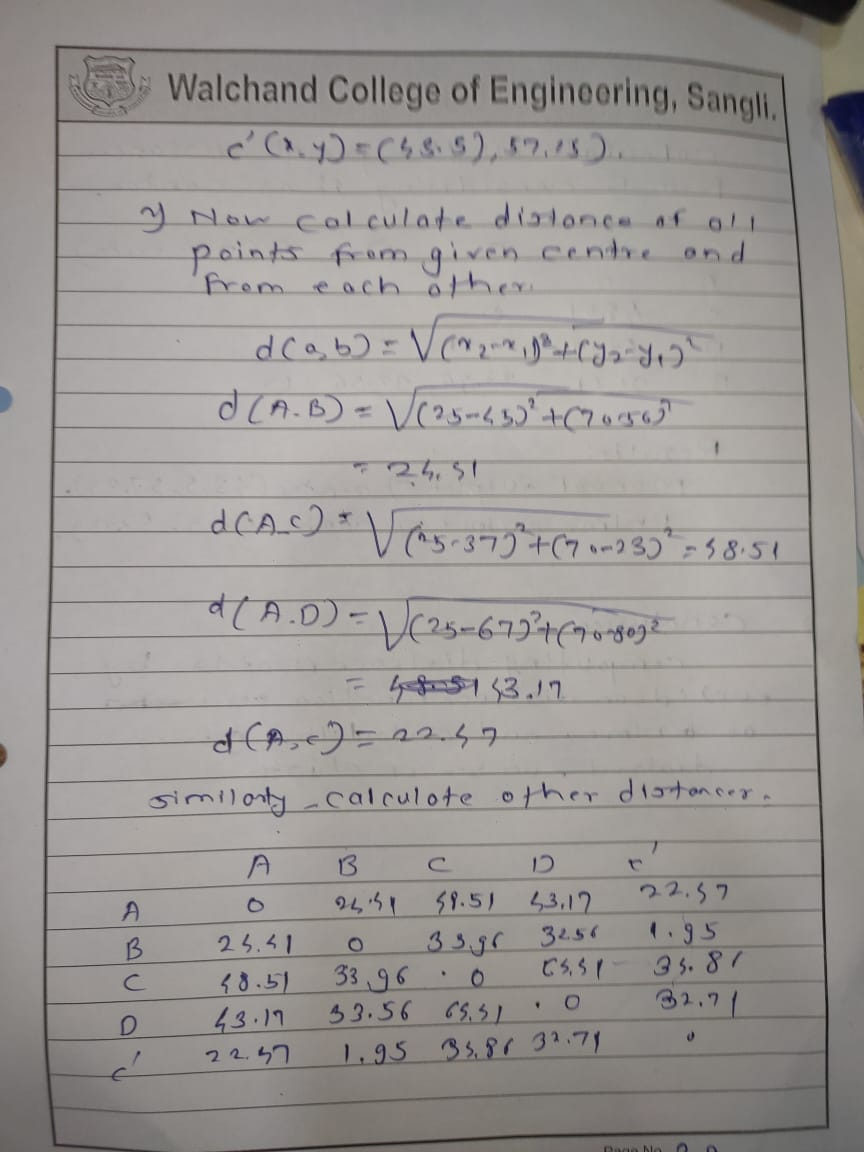 Walchand College of Engineering, Sangli.
c'(x,y) = (43.5), 57.15).
2) Now calculate distance of all
points from given centre and
from each other.
d(a,b) = √(x₂-x₁)²+(y₂-y₁)²
d(A.B) = √(25-45)²+(70-56)²
= 24.41
d(A.C) = √(25-37)²+(70-23)² = 48.51
d(A.D) = √(25-67)²+(70-80)²
= 43.17
d(A,c') = 22.47
similarly calculate other distances.
A B C D c'
A 0 24.41 48.51 43.17 22.47
B 24.41 0 33.96 32.56 1.95
C 48.51 33.96 0 64.41 34.81
D 43.17 33.56 64.41 0 32.71
c' 22.47 1.95 34.81 32.71 0
Page No.